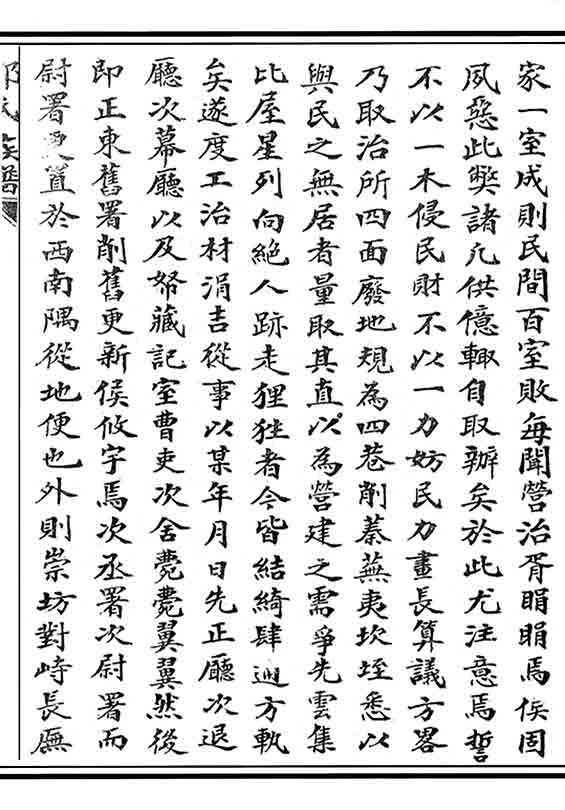 家一室成則民間百室敗每聞營治胥睊睊焉侯固
夙惡此獘諸凢供億輙自取辦矣於此尤注意焉誓
不以一木侵民財不以一力妨民力畫長算議方畧
乃取治所四面廢地規為四巷削蓁蕪夷坎垤悉以
與民之無居者量取其直以為營建之需爭先雲集
比屋星列向絶人跡走狸狌者今皆結綺肆通方軌
矣遂度工治材涓吉從事以某年月日先正廳次退
廳次幕廳以及帑藏記室曹吏次舍甍甍翼翼然後
即正東舊署削舊更新侯攸宇焉次丞署次尉署而
尉署更置於西南隅從地便也外則崇坊對峙長廡
氏族譜